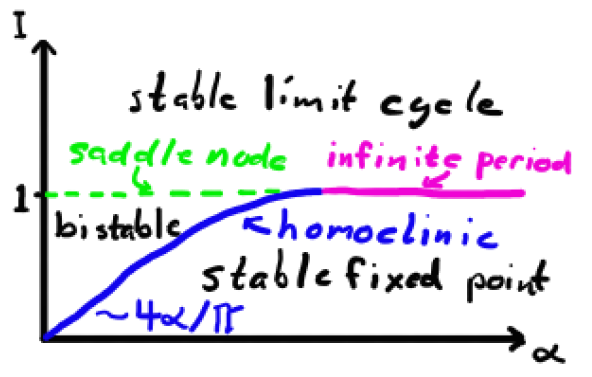 I
stable limit cycle
saddle node
infinite period
1
bistable
homoclinic
stable fixed point
~4α/π
α